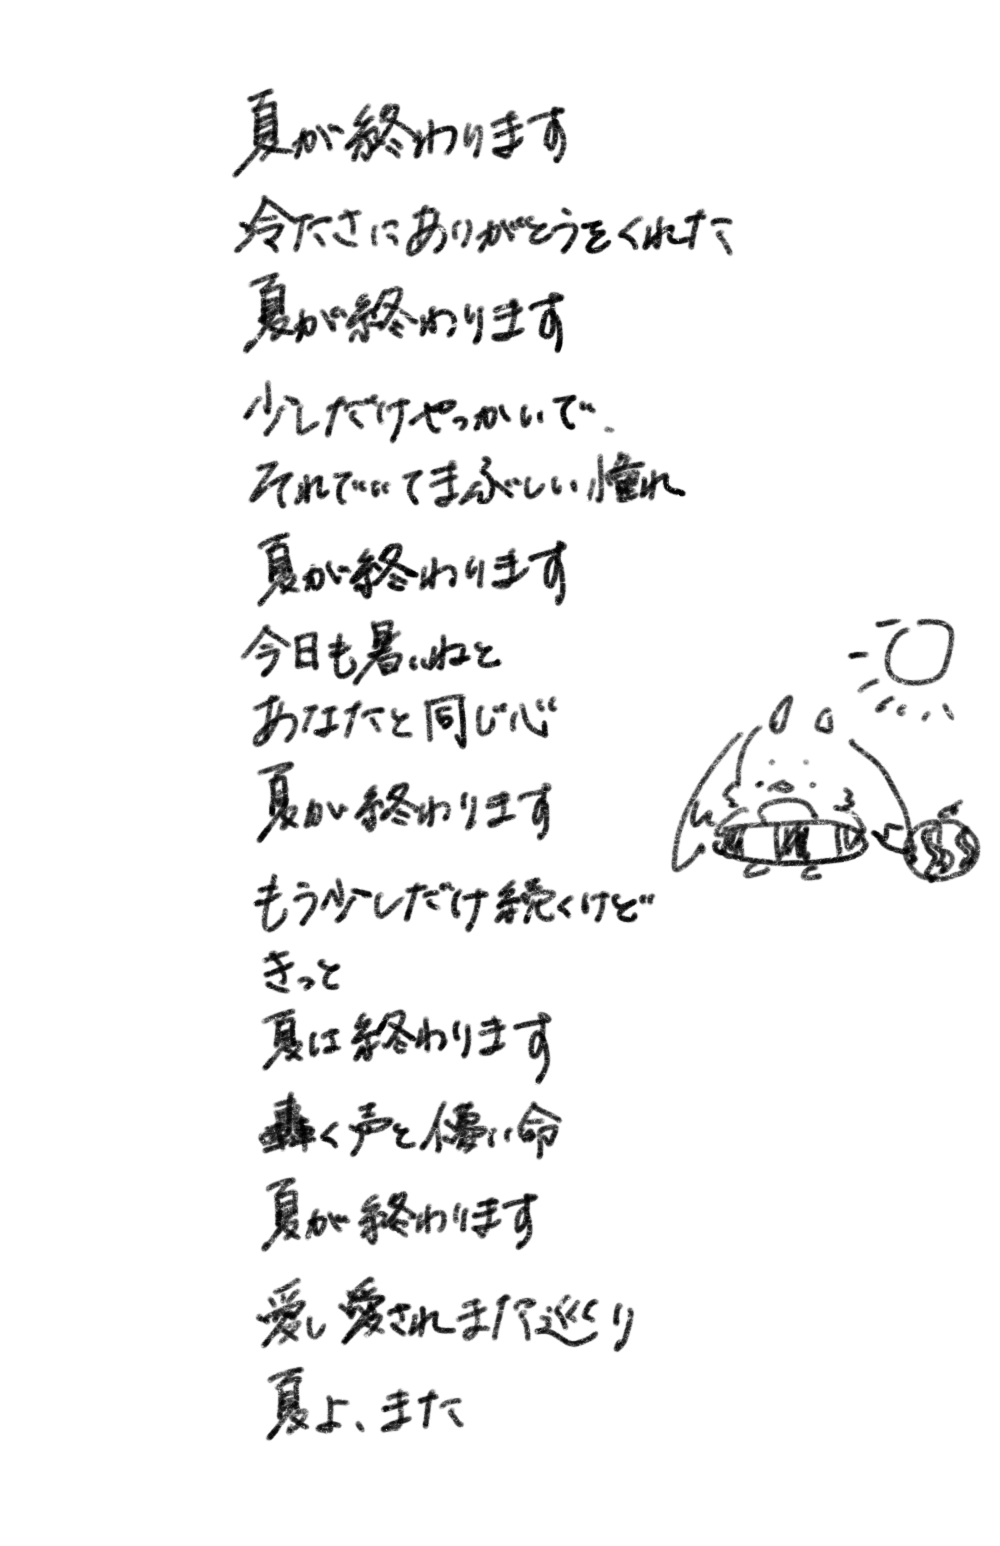 夏が終わります
冷たさにありがとうをくれた
夏が終わります
少しだけやっかいで
それでいてまぶしい憧れ
夏が終わります
今日も暑いねと
あなたと同じ心
夏が終わります
もう少しだけ続くけど
きっと
夏は終わります
轟く声と儚い命
夏が終わります
愛し愛されまた巡り
夏よ、また